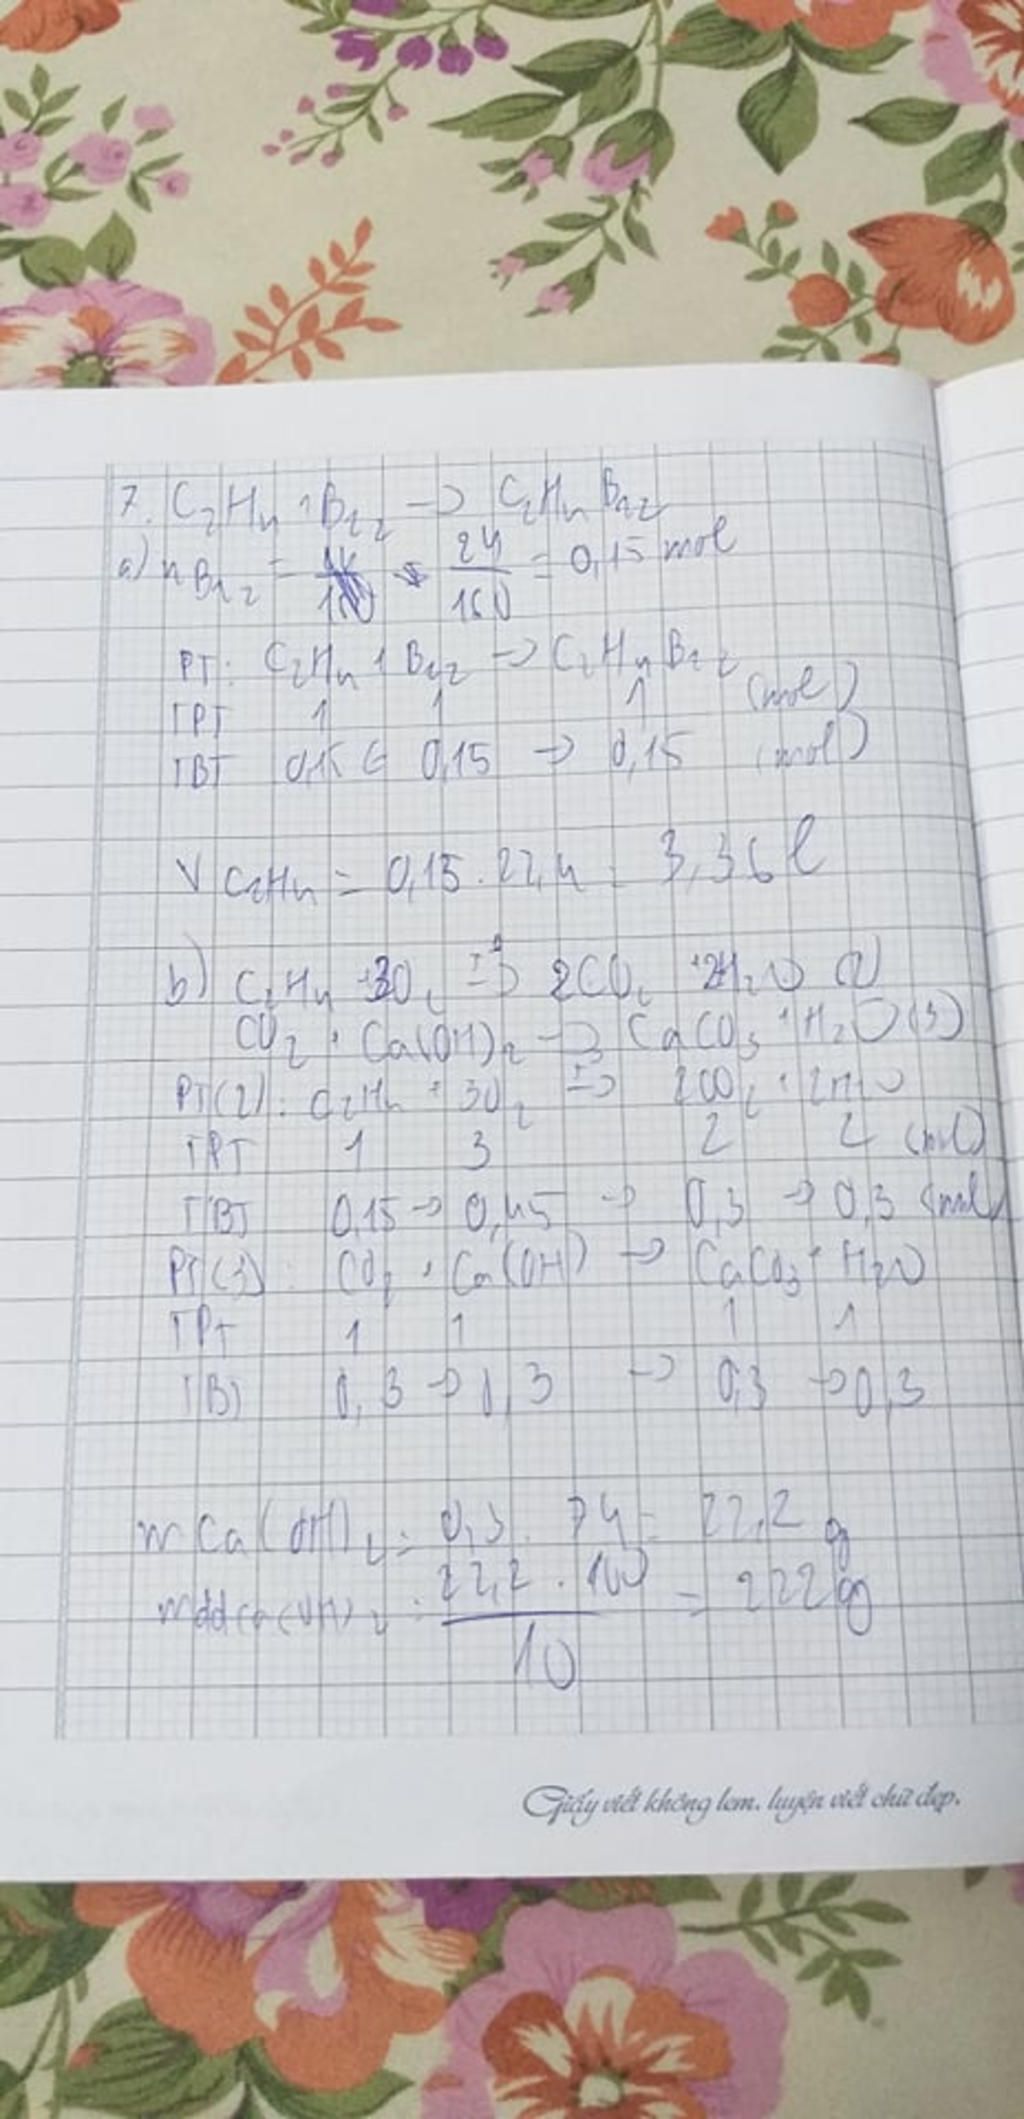 7. C₂H₄ + Br₂ → C₂H₄Br₂
a) nBr₂ = 24/160 = 0,15 mol
PT: C₂H₄ + Br₂ → C₂H₄Br₂
TPT 1 1 1 (mol)
TBT 0,15 ← 0,15 → 0,15 (mol)
V C₂H₄ = 0,15 . 22,4 = 3,36 l
b) C₂H₄ + 3O₂ → 2CO₂ + 2H₂O (2)
CO₂ + Ca(OH)₂ → CaCO₃ + H₂O (3)
PT(2): C₂H₄ + 3O₂ → 2CO₂ + 2H₂O
TPT 1 3 2 2 (mol)
TBT 0,15 → 0,45 → 0,3 → 0,3 (mol)
PT(3): CO₂ + Ca(OH) → CaCO₃ + H₂O
TPT 1 1 1 1
TBT 0,3 → 0,3 → 0,3 → 0,3
mCa(OH)₂ = 0,3 . 74 = 22,2 g
mddCa(OH)₂ = 22,2 . 100/10 = 222g
Giấy viết không lem, luyện viết chữ đẹp.